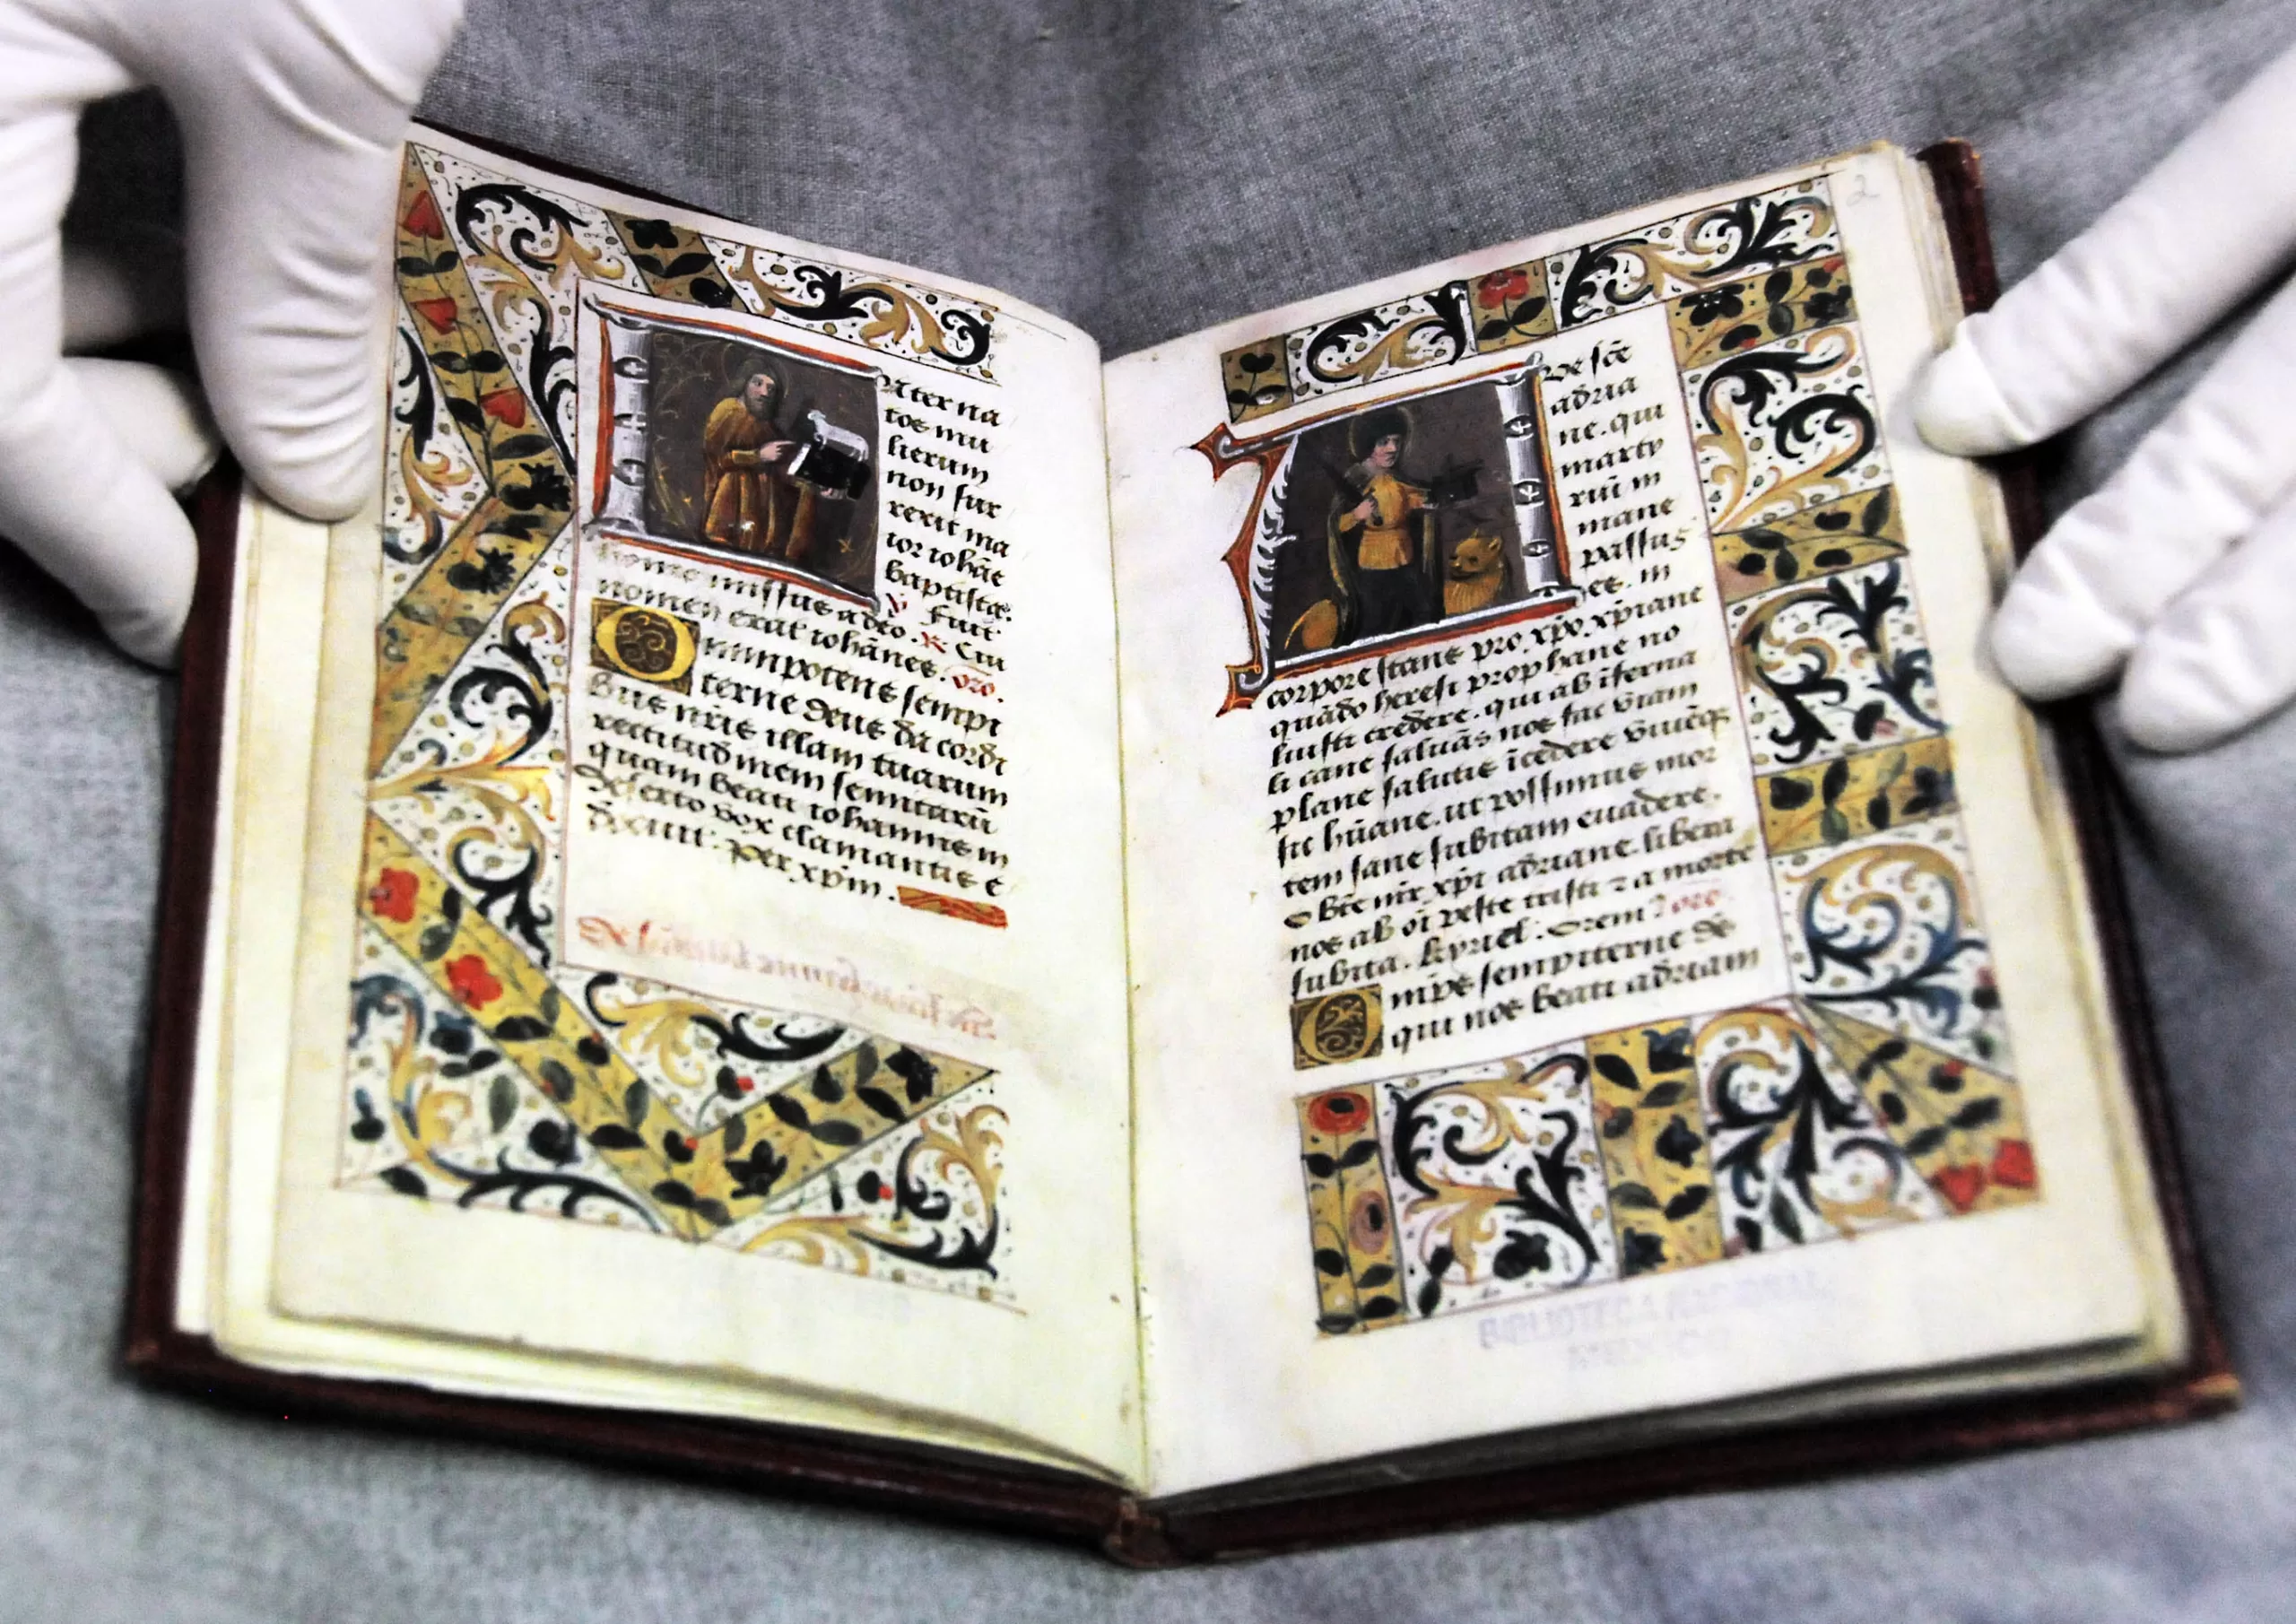 nter na
tos mu
lierum
non sur
rexit ma
ior iohãe
baptista.
℣ Fuit
homo missus a deo. ℟ Cui
nomen erat iohãnes. oro.
Omnipotens sempi
terne deus da cordi
bus nr̃is illam tuarum
rectitudinem semitarũ
quam beati iohannis in
deserto vox clamantis e
docuit. Per xp̃m.
2
Ave sc̃e
adria
ne. qui
marty
riũ in
mane
passus
es. in
corpore stans pro. xp̃o. xp̃iane
quãdo heresi prophane no
luisti credere. qui ab ĩferna
li cane saluãs nos fac viam
plane salutis ĩcedere
sic hũane. ut possimus mor
tem sane subitam euadere.
O bñe mr̃ xp̃i adriane. libera
nos ab oĩ peste tristi ⁊ a morte
subita. kyriel. Orem⁹ oro.
Om̃ps sempiterne ds̃
qui nos beati adriani
BIBLIOTECA NACIONAL